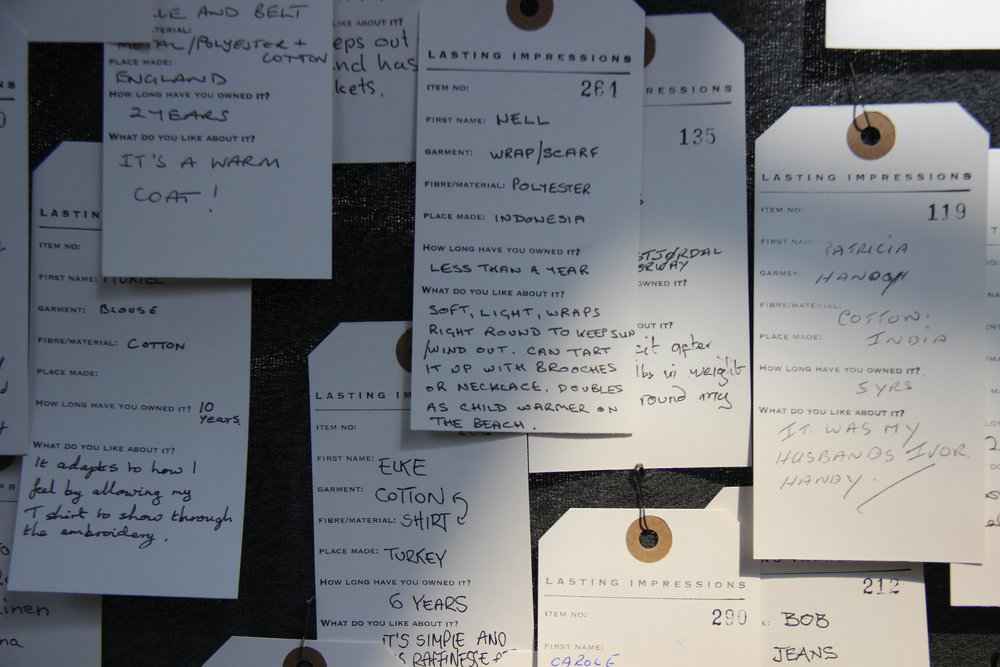 AND BELT
METAL/POLYESTER +
COTTON
PLACE MADE:
ENGLAND
HOW LONG HAVE YOU OWNED IT?
2 YEARS
WHAT DO YOU LIKE ABOUT IT?
IT'S A WARM
COAT!
LIKE ABOUT IT?
eps out
nd has
kets.
LASTIN
ITEM NO:
FIRST NAME: MURIEL
GARMENT: BLOUSE
FIBRE/MATERIAL: COTTON
PLACE MADE:
HOW LONG HAVE YOU OWNED IT? 10
years.
WHAT DO YOU LIKE ABOUT IT?
It adapts to how I
feel by allowing my
T shirt to show through
the embroidery.
LASTING IMPRESSIONS
ITEM NO: 261
FIRST NAME: NELL
GARMENT: WRAP/SCARF
FIBRE/MATERIAL: POLYESTER
PLACE MADE: INDONESIA
HOW LONG HAVE YOU OWNED IT?
LESS THAN A YEAR
WHAT DO YOU LIKE ABOUT IT?
SOFT, LIGHT, WRAPS
RIGHT ROUND TO KEEP SUN
/WIND OUT. CAN TART
IT UP WITH BROOCHES
OR NECKLACE, DOUBLES
AS CHILD WARMER ON
THE BEACH.
RESSIONS
135
OWNED IT?
OUT IT?
lbs in weight
round my
LASTING IMPRESSIONS
ITEM NO: 119
FIRST NAME: PATRICIA
GARMENT: HANDY
FIBRE/MATERIAL:
COTTON.
PLACE MADE: INDIA
HOW LONG HAVE YOU OWNED IT?
5 YRS
WHAT DO YOU LIKE ABOUT IT?
IT WAS MY
HUSBANDS IVOR
HANDY.
LASTING
ITEM NO:
FIRST NAME: ELKE
GARMENT: COTTON
FIBRE/MATERIAL: SHIRT
PLACE MADE: TURKEY
HOW LONG HAVE YOU OWNED IT?
6 YEARS
WHAT DO YOU LIKE ABOUT IT?
IT'S SIMPLE AND
LASTING IMPRESSIONS
ITEM NO: 290
FIRST NAME:
CAROLE
212
BOB
JEANS